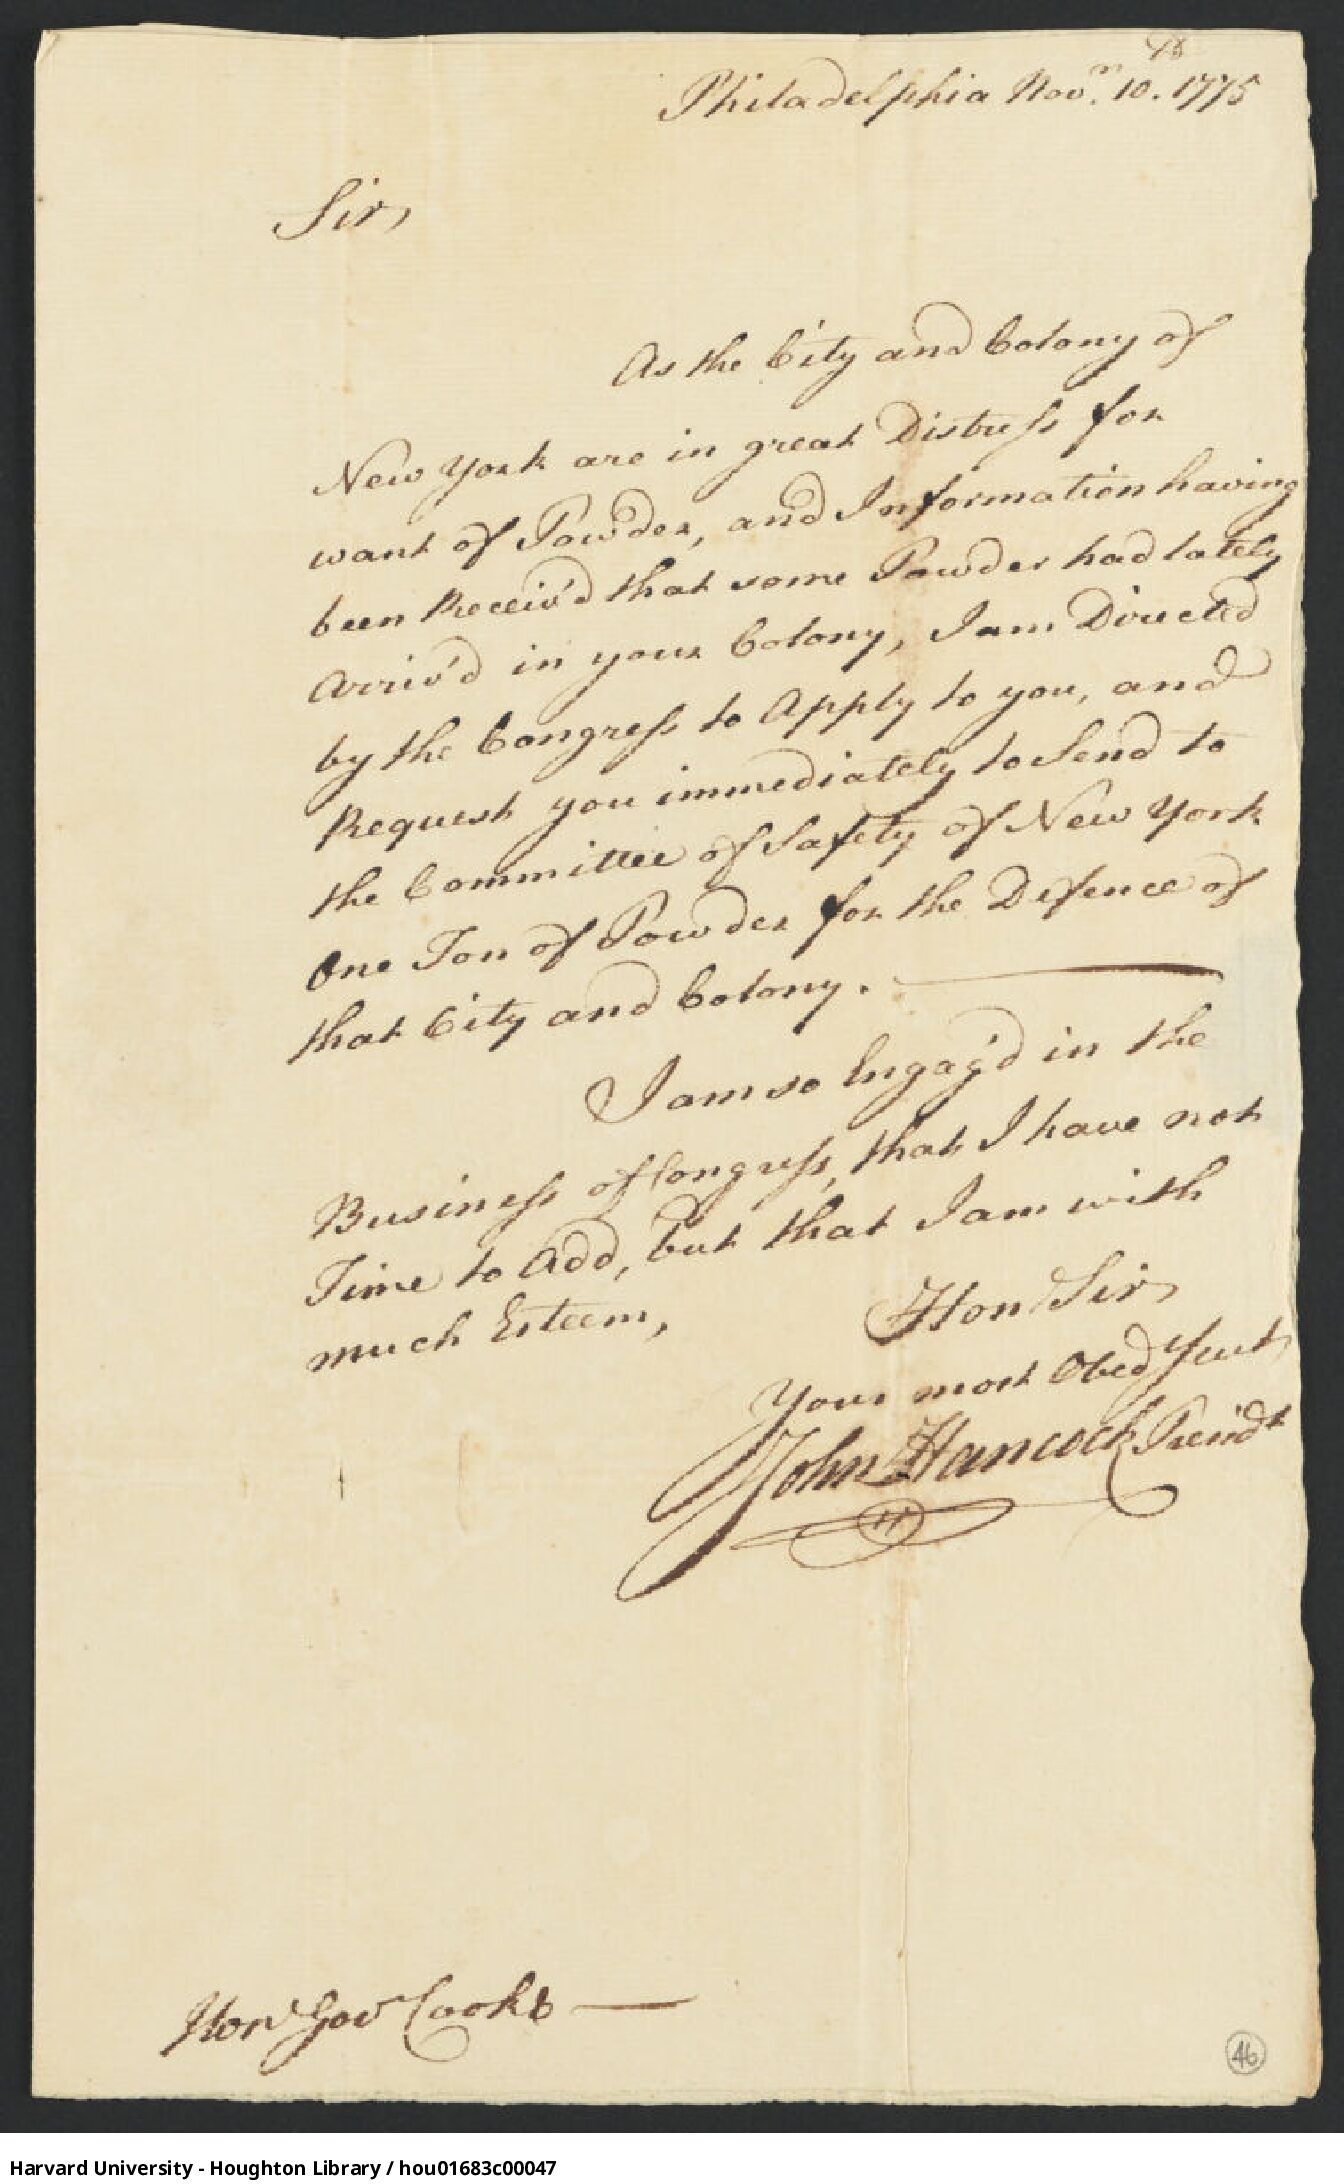 Philadelphia Novr. 10. 1775
Sir,
As the City and Colony of
New York are in great Distress for
want of Powder, and Information having
been Receiv'd that some Powder had lately
Arriv'd in your Colony, I am Directed
by the Congress to Apply to you, and
Request you immediately to Send to
the Committee of Safety of New York
One Ton of Powder for the Defence of
that City and Colony.
I am so Engag'd in the
Business of Congress, that I have not
Time to Add, but that I am with
much Esteem,
Hon Sir,
Your most Obed Servt
John Hancock Presidt
Honl Govr Cooke
46
Harvard University - Houghton Library / hou01683c00047